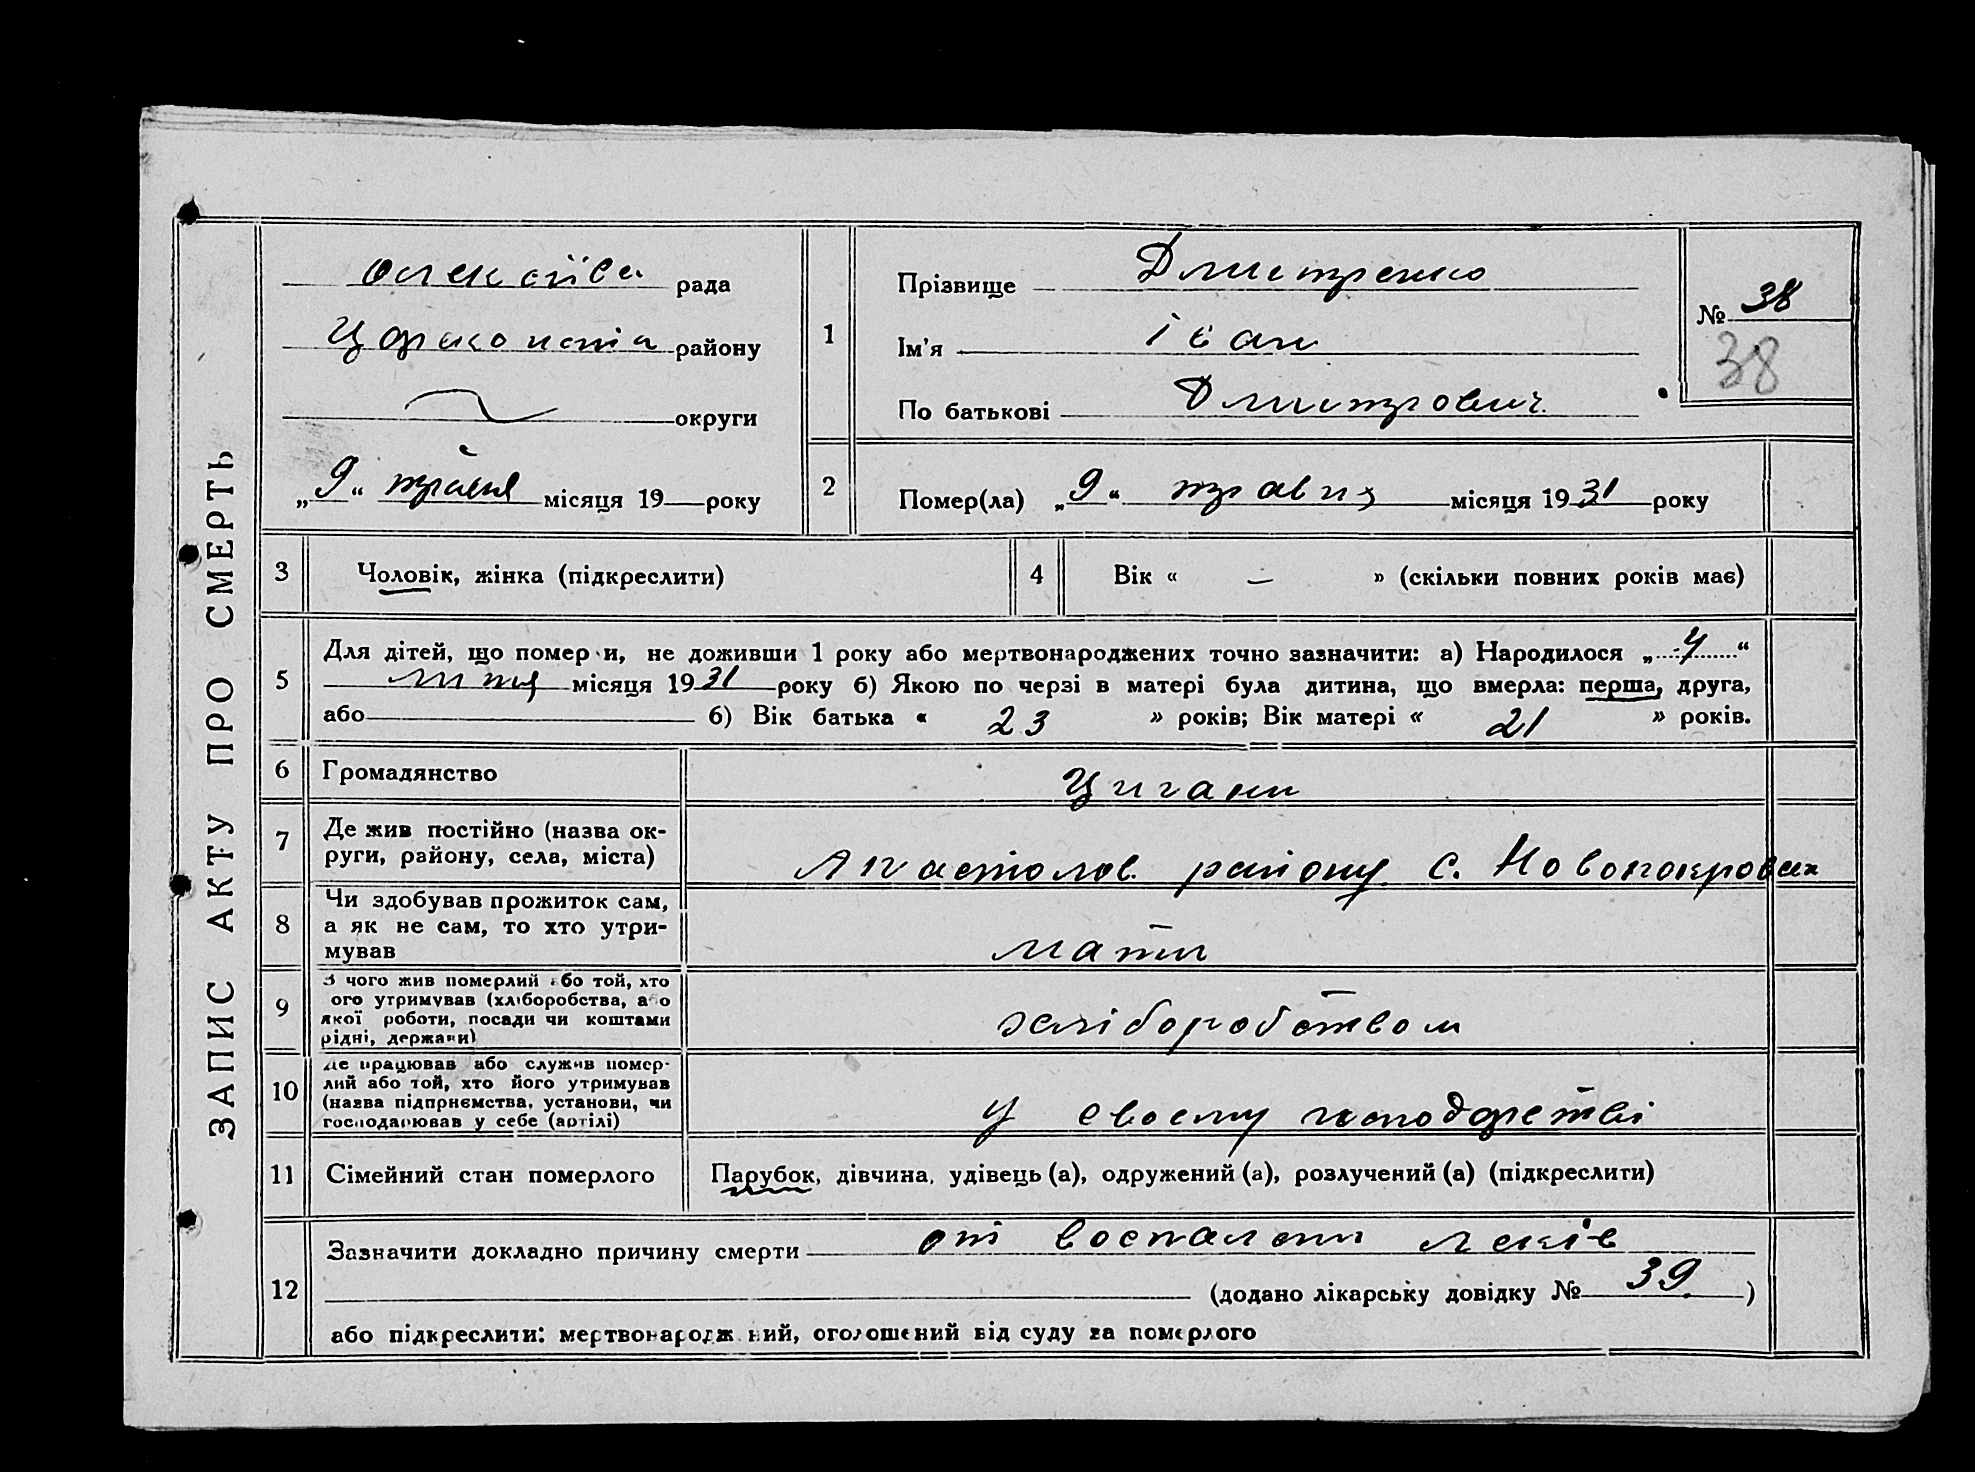 ЗАПИС АКТУ ПРО СМЕРТЬ
рада
району
округи
„9“ травня місяця 19 року
1
Прізвище Дмитренко
Ім'я Іван
По батькові Дмитрович
№ 38
38
2
Помер(ла) „9“ травня місяця 1931 року
3
Чоловік, жінка (підкреслити)
4
Вік « — » (скільки повних років має)
5
Для дітей, що померли, не доживши 1 року або мертвонароджених точно зазначити: а) Народилося „4“
місяця 1931 року б) Якою по черзі в матері була дитина, що вмерла: перша, друга,
або б) Вік батька « 23 » років; Вік матері « 21 » років.
6
Громадянство Цигани
7
Де жив постійно (назва ок-
руги, району, села, міста)
Апастолов. району с. Новопокровка
8
Чи здобував прожиток сам,
а як не сам, то хто утри-
мував
мати
9
З чого жив померлий або той, хто
ого утримував (хліборобства, або
якої роботи, посади чи коштами
рідні, держави)
хліборобством
10
Де працював або служив помер-
лий або той, хто його утримував
(назва підприємства, установи, чи
господарював у себе (артілі)
У своєму господарстві
11
Сімейний стан померлого
Парубок, дівчина, удівець (а), одружений (а), розлучений (а) (підкреслити)
12
Зазначити докладно причину смерти от воспалени леків
(додано лікарську довідку № 39)
або підкреслити: мертвонароджений, оголошений від суду за померлого